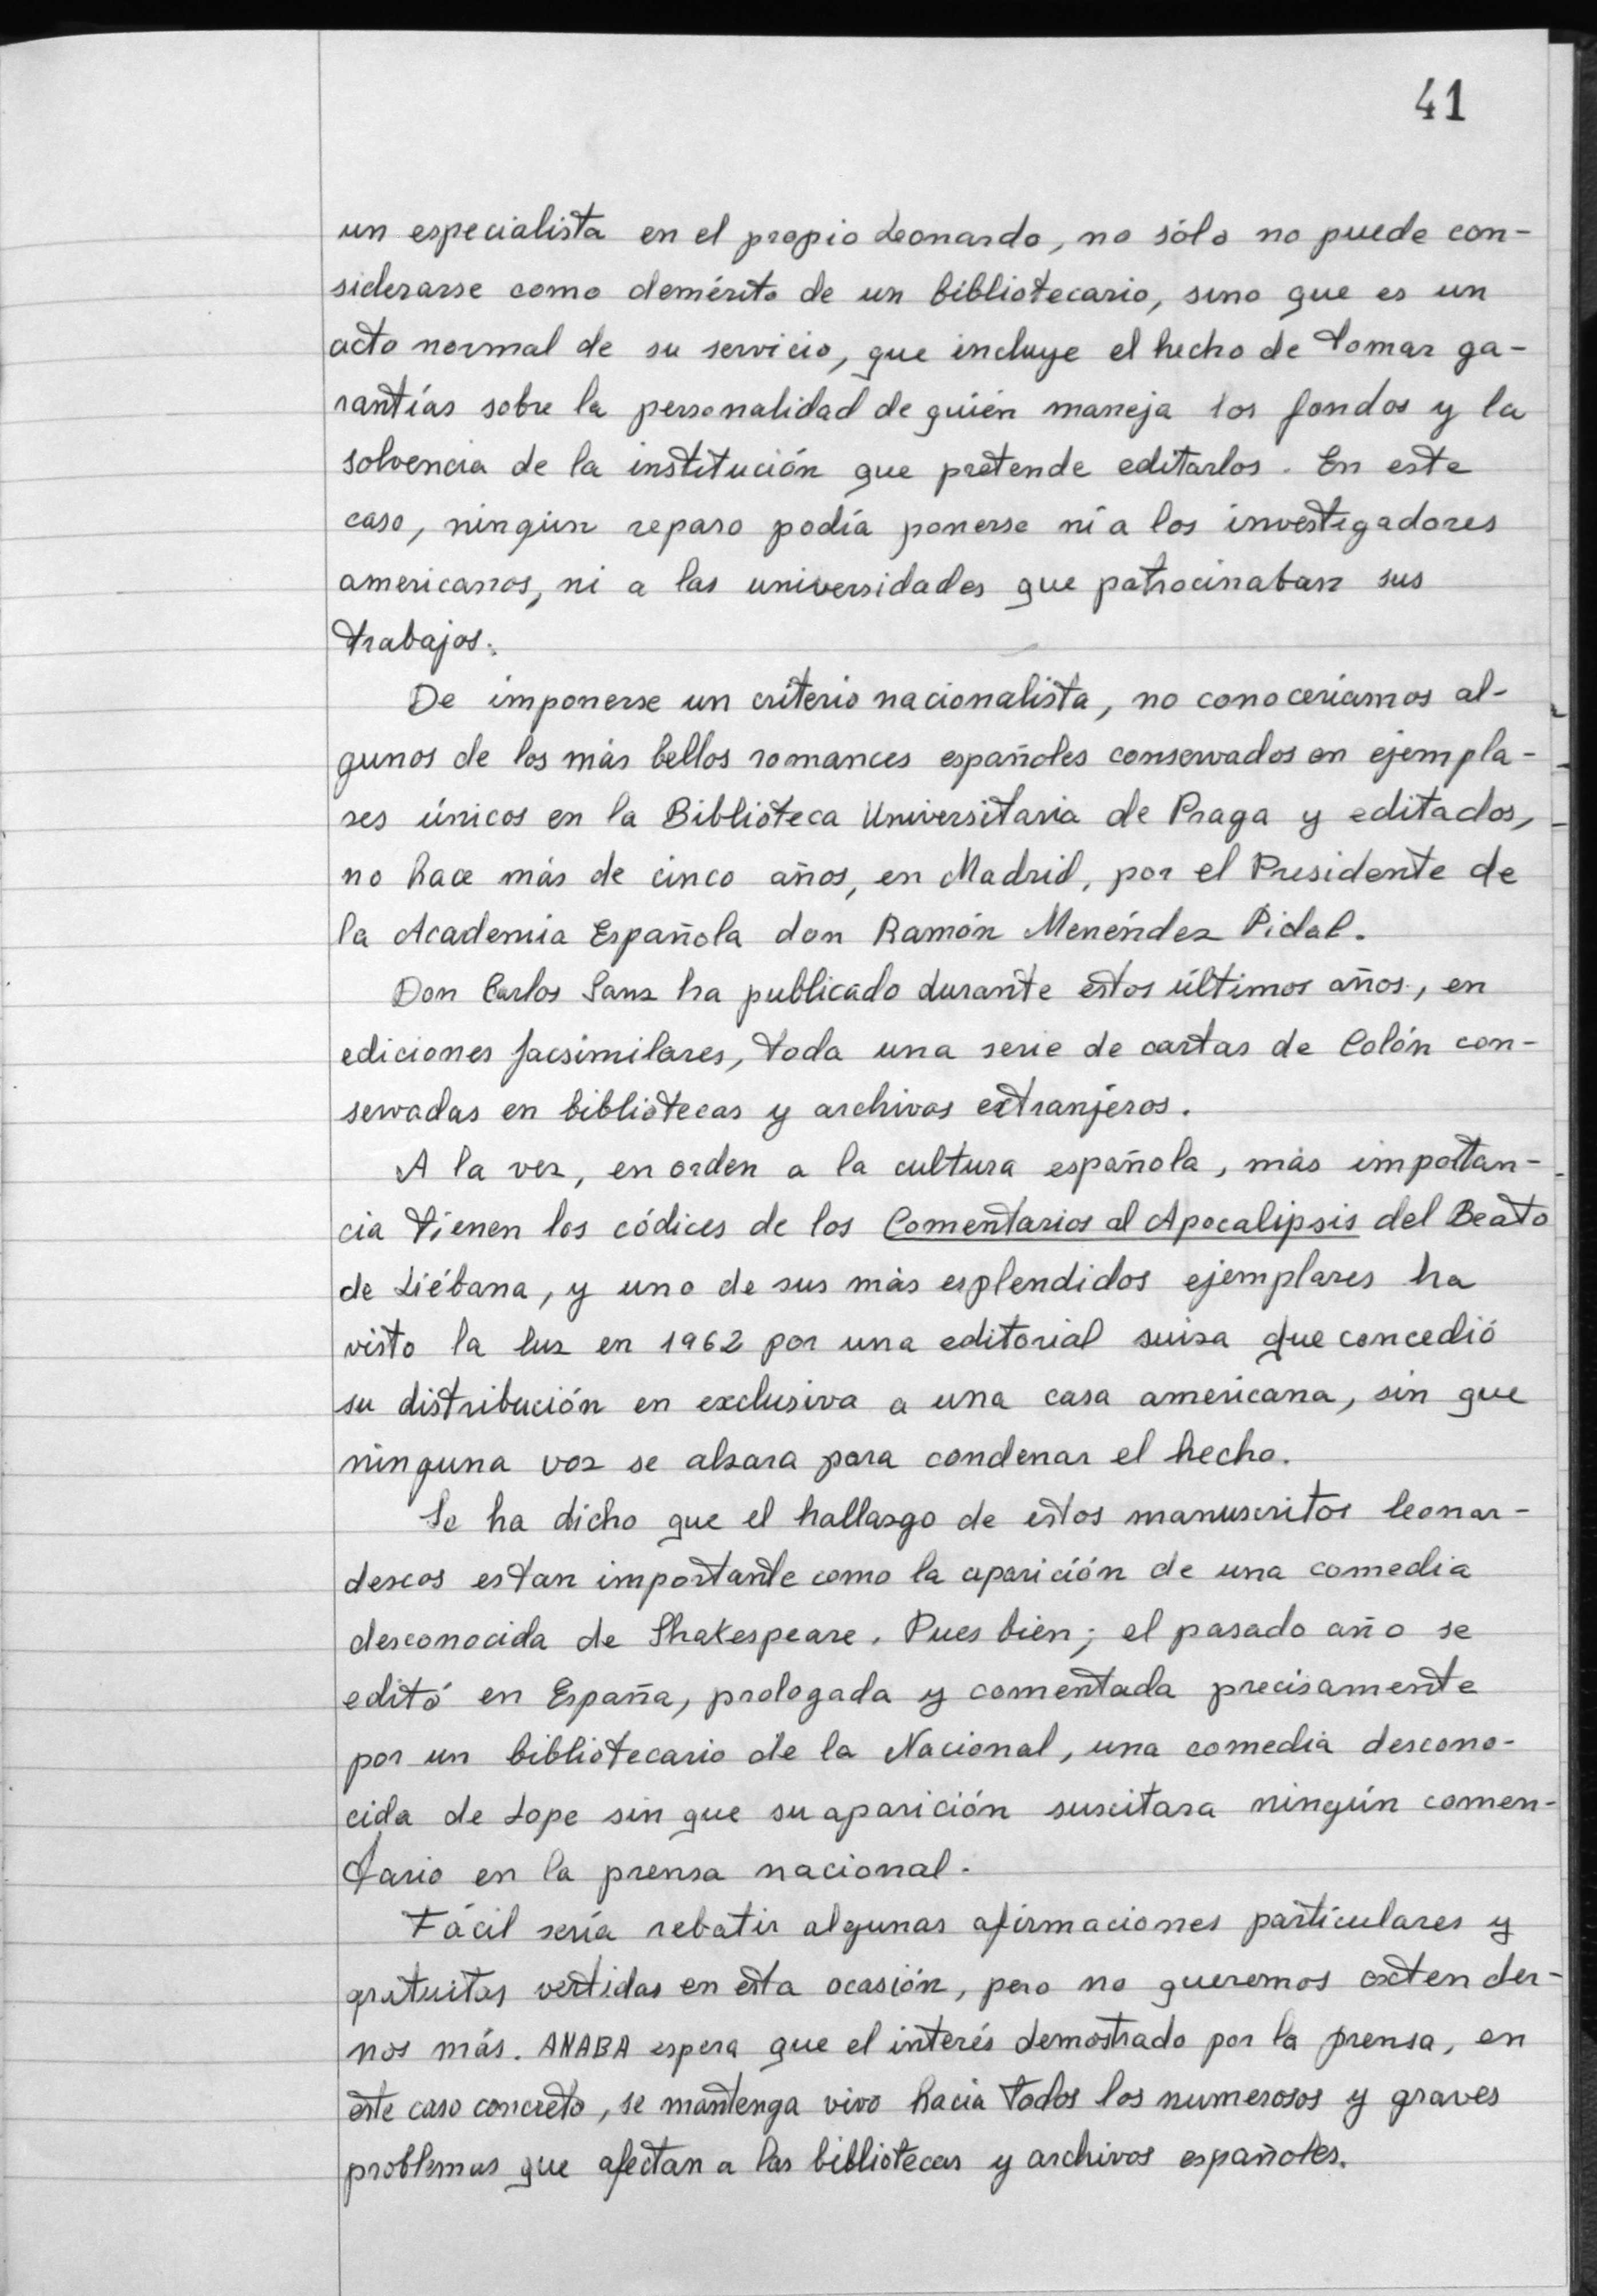 41
un especialista en el propio Leonardo, no sólo no puede con-
siderarse como demérito de un bibliotecario, sino que es un
acto normal de su servicio, que incluye el hecho de tomar ga-
rantías sobre la personalidad de quién maneja los fondos y la
solvencia de la institución que pretende editarlos. En este
caso, ningún reparo podía ponerse ni a los investigadores
americanos, ni a las universidades que patrocinaban sus
trabajos.
De imponerse un criterio nacionalista, no conoceríamos al-
gunos de los más bellos romances españoles conservados en ejempla-
res únicos en la Biblioteca Universitaria de Praga y editados,
no hace más de cinco años, en Madrid, por el Presidente de
la Academia Española don Ramón Menéndez Pidal.
Don Carlos Sanz ha publicado durante estos últimos años, en
ediciones facsimilares, toda una serie de cartas de Colón con-
servadas en bibliotecas y archivos extranjeros.
A la vez, en orden a la cultura española, más importan-
cia tienen los códices de los Comentarios al Apocalipsis del Beato
de Liébana, y uno de sus más esplendidos ejemplares ha
visto la luz en 1962 por una editorial suiza que concedió
su distribución en exclusiva a una casa americana, sin que
ninguna voz se alzara para condenar el hecho.
Se ha dicho que el hallazgo de estos manuscritos leonar-
descos es tan importante como la aparición de una comedia
desconocida de Shakespeare. Pues bien; el pasado año se
editó en España, prologada y comentada precisamente
por un bibliotecario de la Nacional, una comedia descono-
cida de Lope sin que su aparición suscitara ningún comen-
tario en la prensa nacional.
Fácil sería rebatir algunas afirmaciones particulares y
gratuitas vertidas en esta ocasión, pero no queremos exten der-
nos más. ANABA espera que el interés demostrado por la prensa, en
este caso concreto, se mantenga vivo hacia todos los numerosos y graves
problemas que afectan a las bibliotecas y archivos españoles.